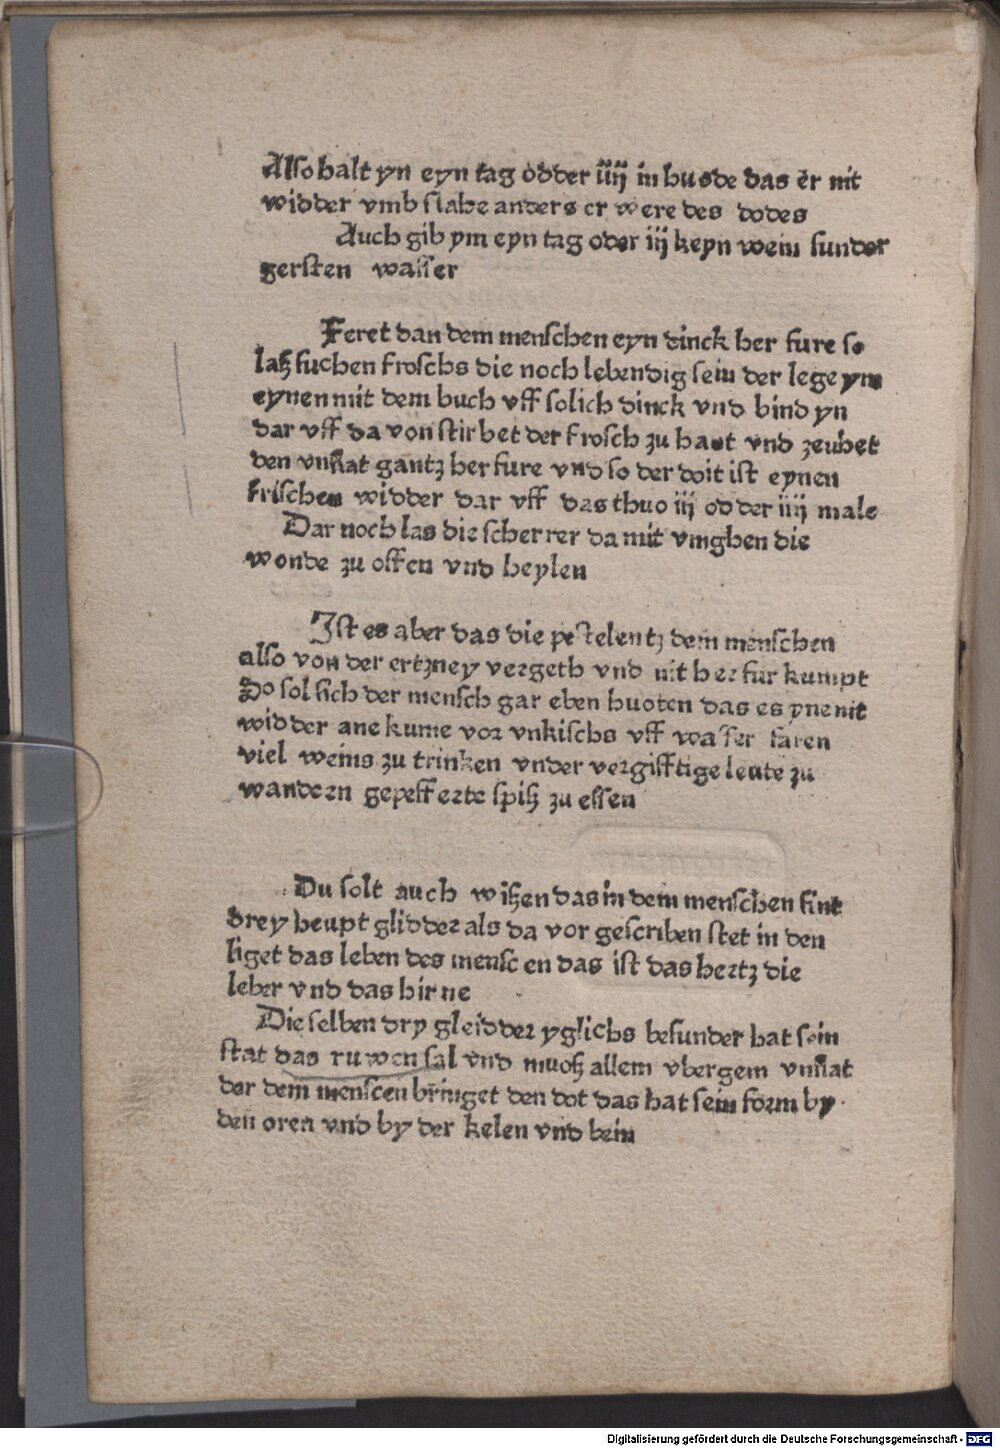 Also halt yn eyn tag odder iiij in husde das er nit
widder vmb slahe anders er were des dodes
Auch gib ym eyn tag oder iij keyn wein sunder
gersten wasser
Feret dan dem menschen eyn dinck her fure so
laß suchen froschs die noch lebendig sein der lege ym
eynen mit dem buch vff solich dinck vnd bind yn
dar vff da von stirbet der frosch zu hant vnd zeuhet
den vnflat gantz her fure vnd so der doit ist eynen
frischen widder dar vff das thuo iij odder iiij male
Dar noch las die scherrer da mit vmghen die
wonde zu offen vnd heylen
Ist es aber das die pestelentz dem menschen
also von der ertzney vergeth vnd nit her fur kumpt
So sol sich der mensch gar eben huoten das es yne nit
widder ane kume vor vnkischs vff wasser faren
viel weins zu trinken vnder vergifftige leute zu
wandern gepefferte spiß zu essen
Du solt auch wißen das in dem menschen sint
drey heupt glidder als da vor gescriben stet in den
liget das leben des mensc en das ist das hertz die
leber vnd das hirne
Die selben dry gleidder yglichs besunder hat sein
stat das ruwen sal vnd muoß allem vbergem vnflat
der dem menscen bringet den dot das hat sein form by
den oren vnd by der kelen vnd bein
Digitalisierung gefördert durch die Deutsche Forschungsgemeinschaft - DFG